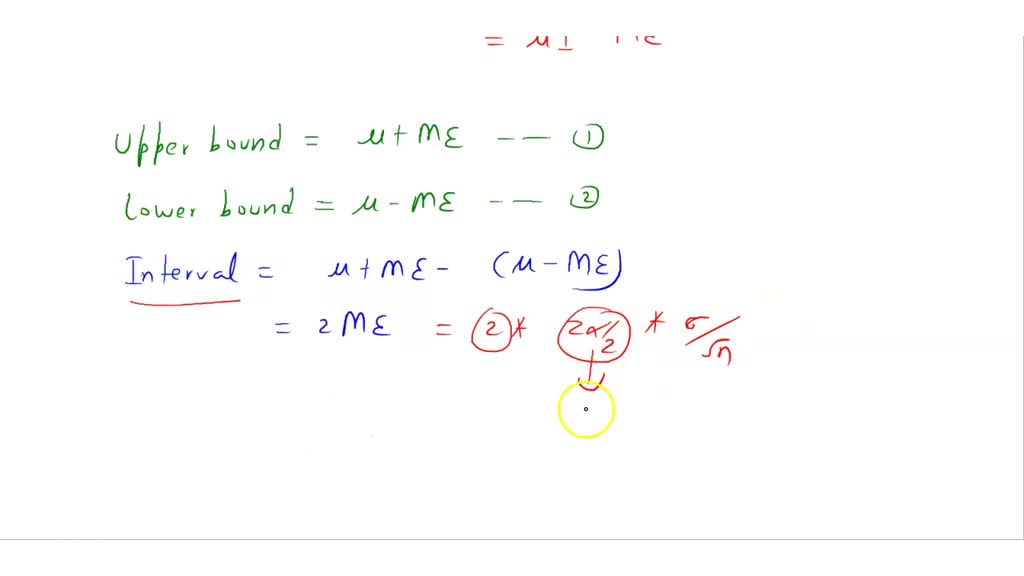 = μ ± ME
Upper bound = μ + ME -- — ①
Lower bound = μ - ME -- — ②
Interval = μ + ME - (μ - ME)
= 2 ME = 2 * Zα/2 * σ/√n